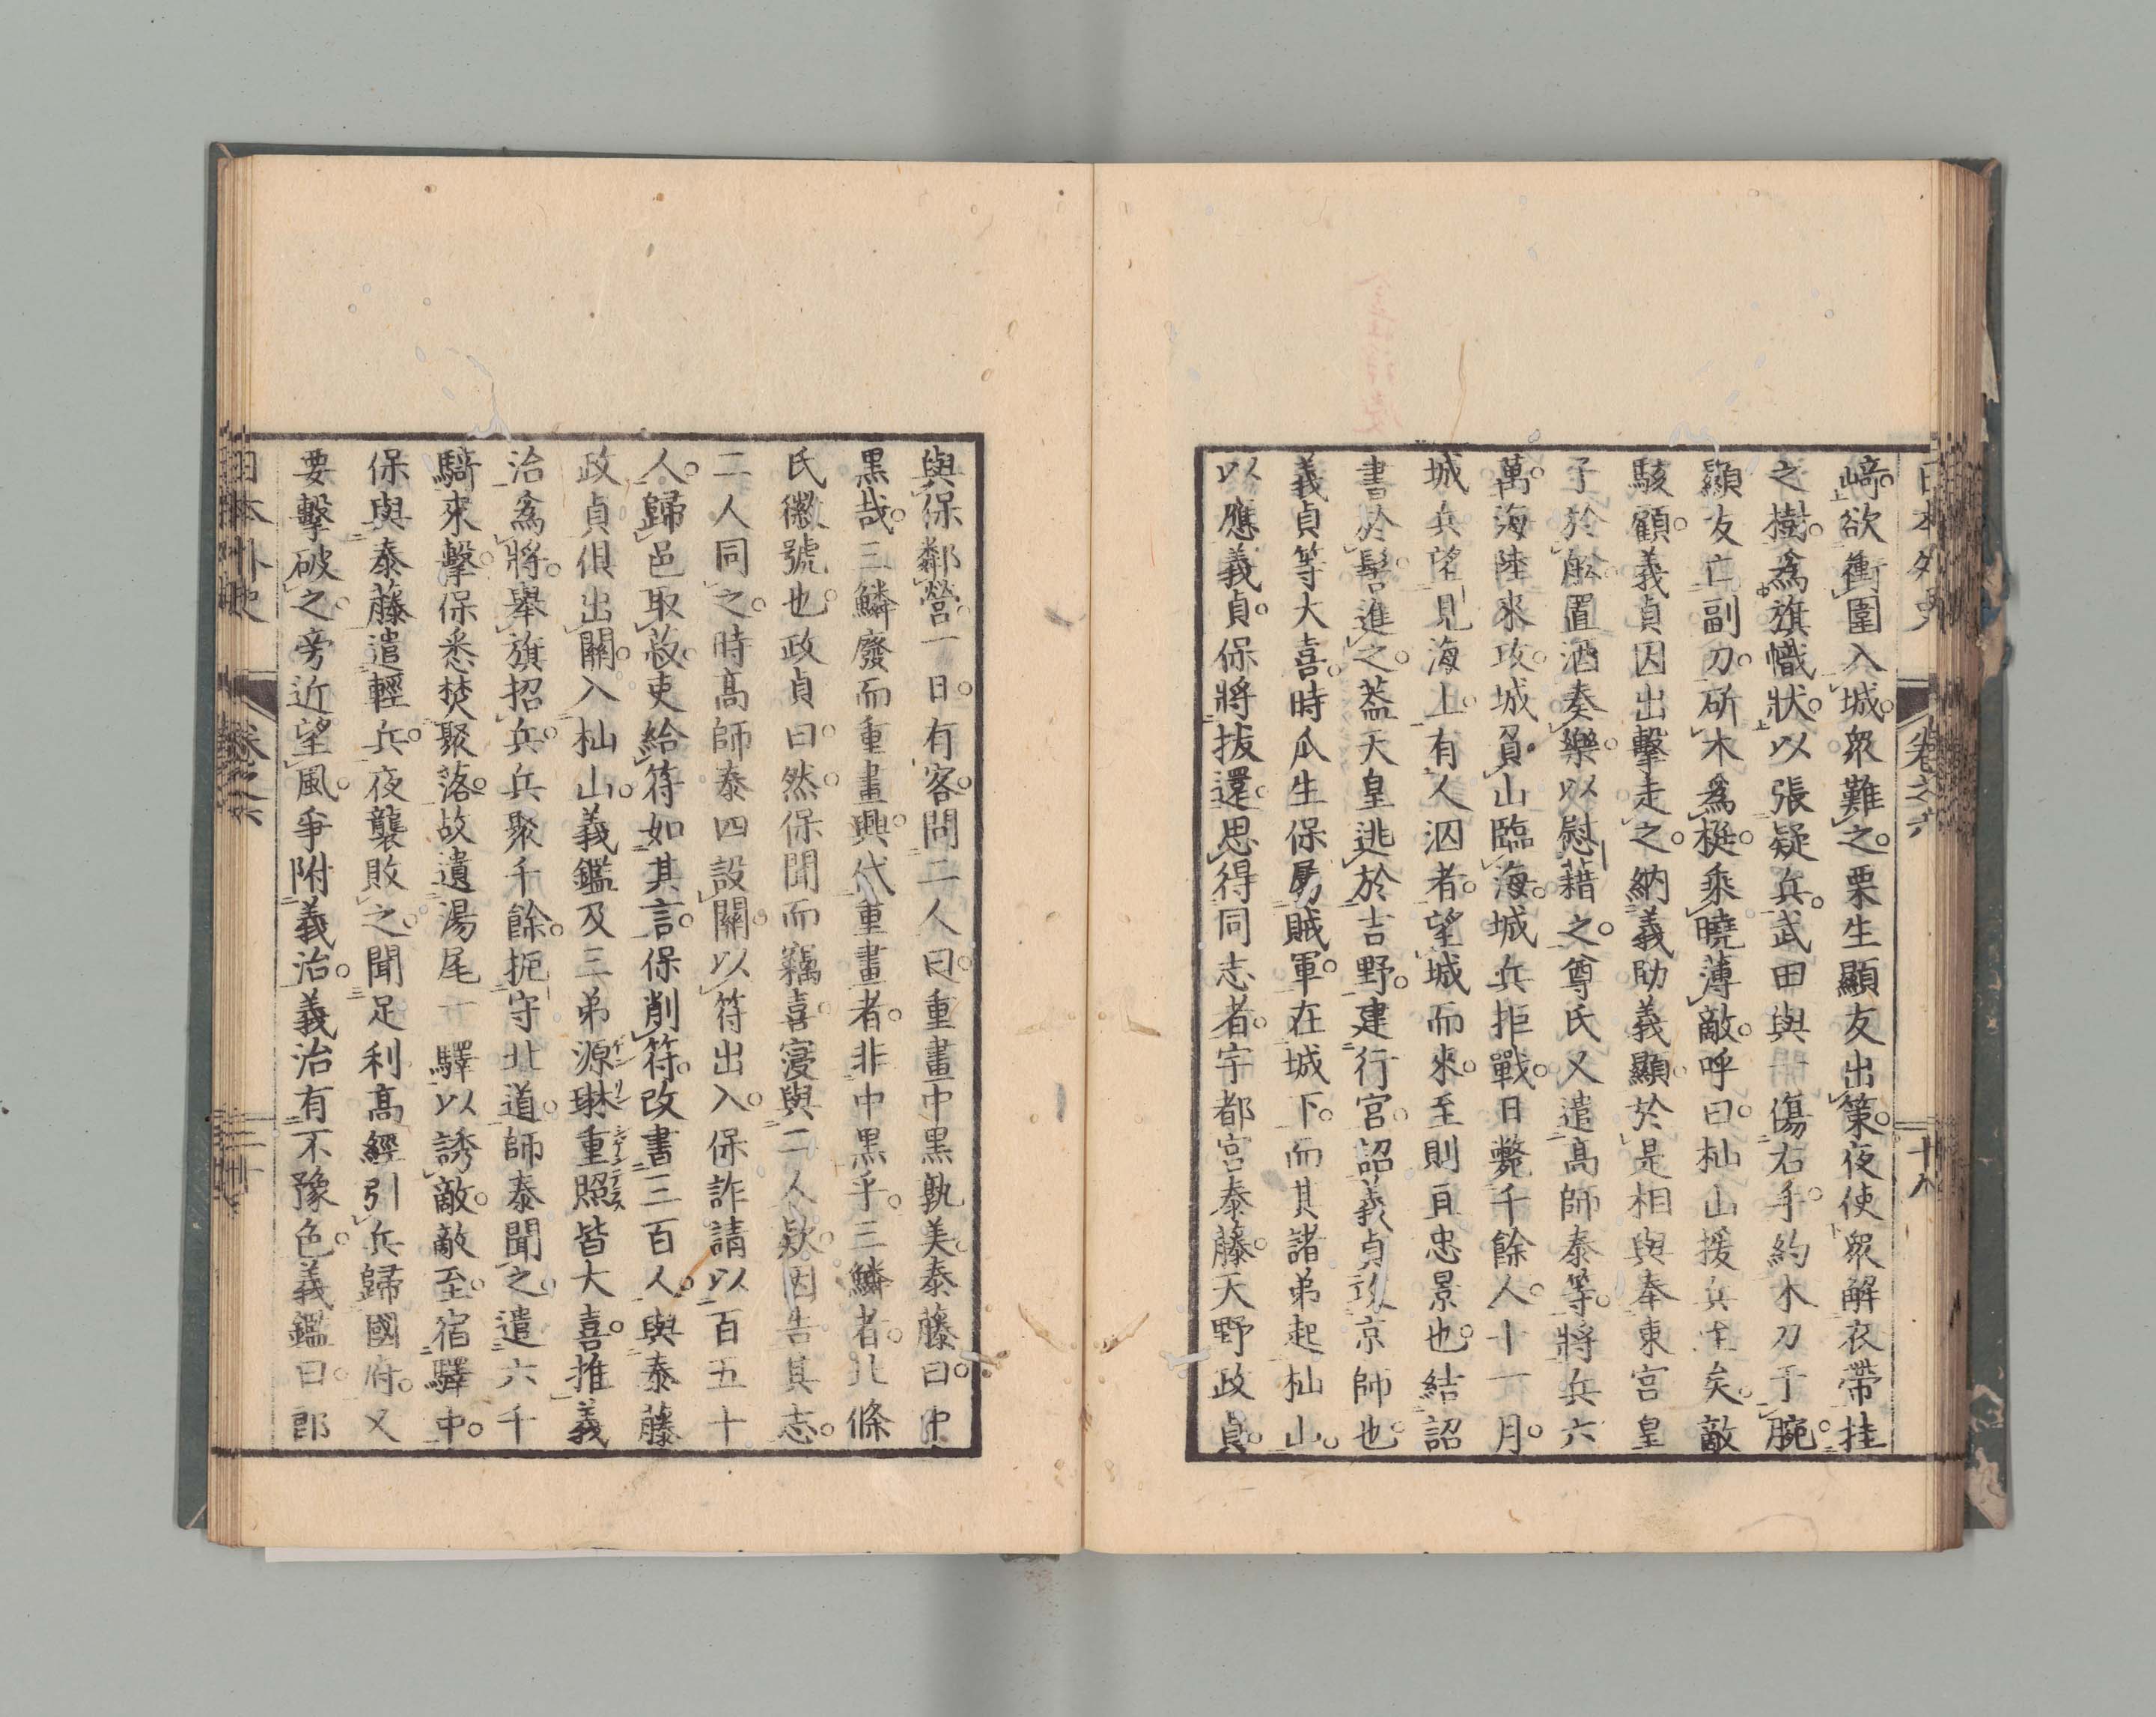 日本外史 卷之六 十八
﨑。欲衝圍入城。衆難之。栗生顯友出策。夜使衆解衣帶挂
之樹。爲旗幟狀。以張疑兵。武田與一傷右手。約木刀于腕。
顯友亡副刀。斫木爲梃。乘曉薄敵。呼曰。杣山援兵至矣。敵
駭顧。義貞因出擊走之。納義助義顯。於是相與奉東宮皇
子於船。置酒奏樂。以慰藉之。尊氏又遣高師泰等。將兵六
萬。海陸來攻。城負山臨海。城兵拒戰。日斃千餘人。十一月。
城兵望見海上。有人泅者。望城而來。至則亘忠景也。結詔
書於髻進之。蓋天皇逃於吉野。建行宮。詔義貞攻京師也。
義貞等大喜。時瓜生保屬賊軍。在城下。而其諸弟起杣山。
以應義貞。保將拔還。思得同志者。宇都宮泰藤。天野政貞。
與保鄰營。一日。有客。問二人曰。重畫中黑孰美。泰藤曰。中
黑哉。三鱗廢而重畫興。代重畫者。非中黑乎。三鱗者。北條
氏徽號也。政貞曰。然。保聞而竊喜。寖與二人欵。因告其志。
二人同之。時高師泰四設關。以符出入。保詐請以百五十
人。歸邑取蒭。吏給符如其言。保削符。改書三百人。與泰藤
政貞俱出關。入杣山。義鑑及三弟源琳重照皆大喜。推義
治爲將。舉旗招兵。兵聚千餘。扼守北道。師泰聞之。遣六千
騎來擊。保悉焚聚落。故遺湯尾一驛以誘敵。敵至。宿驛中。
保與泰藤遣輕兵。夜襲敗之。聞足利高經引兵歸國府。又
要擊破之。旁近望風。爭附義治。義治有不豫色。義鑑曰。郎
日本外史 卷之六